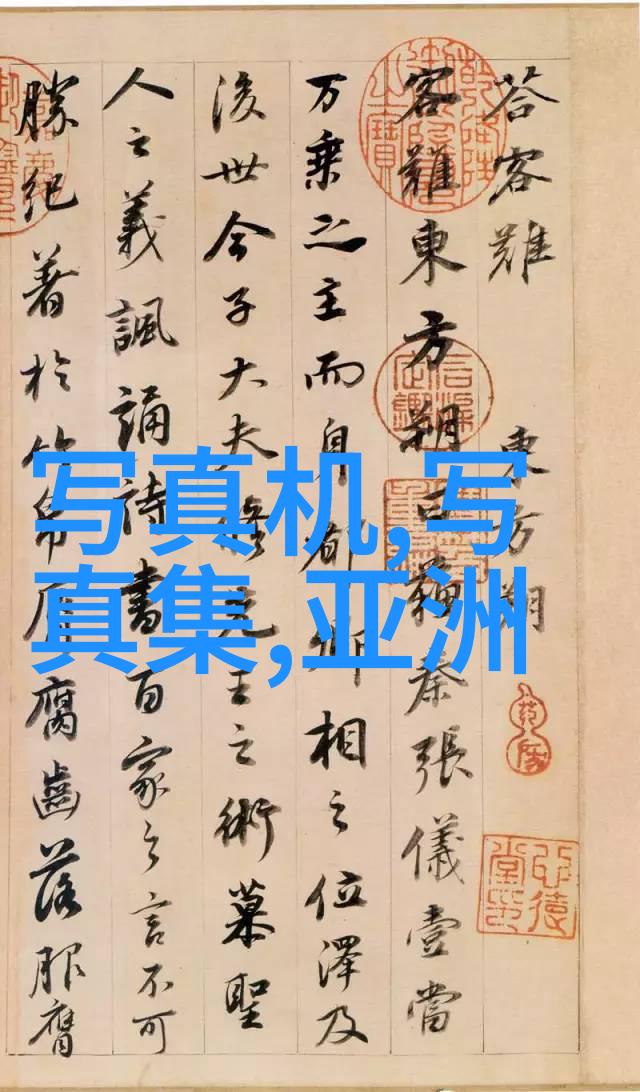 荅客難 東方朔
客難東方朔曰蘇秦張儀壹當
万乗之主而身都卿相之位澤及
後世今子大夫修先王之術慕聖
人之義諷誦詩書百家之言不可
勝紀著於竹帛唇腐齒落服膺
写真机,写
真集,亚洲